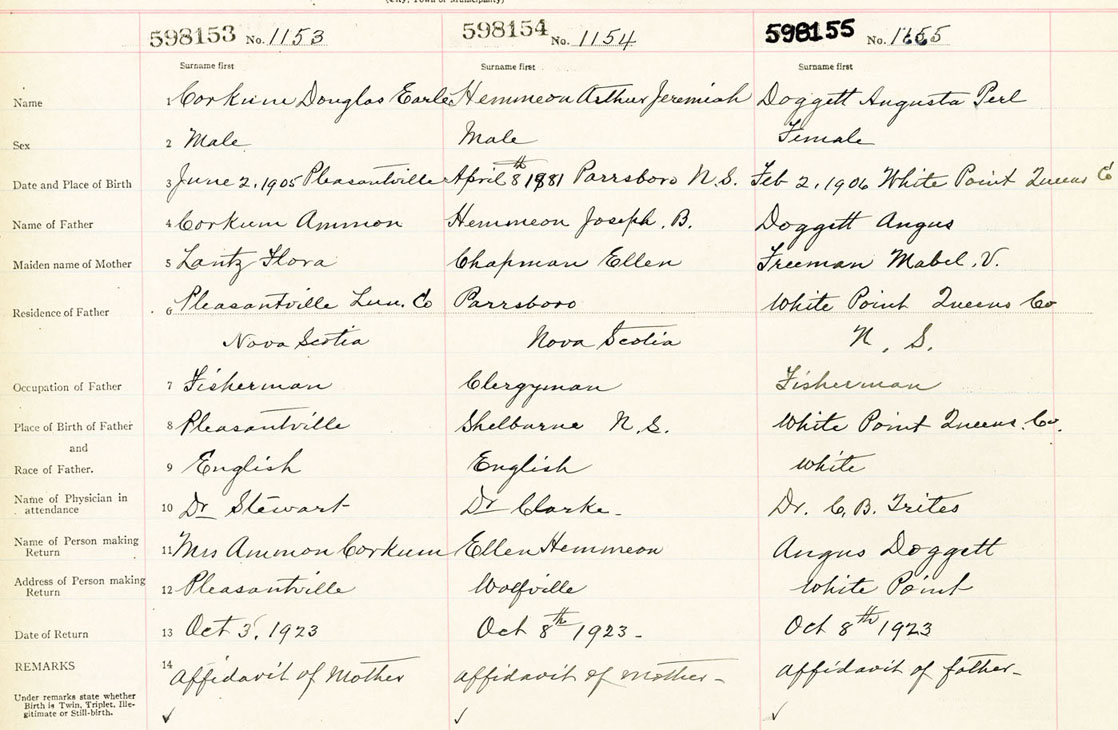 (City, Town or Municipality)
598153 No. 1153 598154 No. 1154 598155 No. 1155
Surname first Surname first Surname first
Name 1 Corkum Douglas Earle Hemmeon Arthur Jeremiah Doggett Augusta Perl
Sex 2 Male Male Female
Date and Place of Birth 3 June 2, 1905 Pleasantville April 8th 1881 Parrsboro N.S. Feb 2, 1906 White Point Queens Co
Name of Father 4 Corkum Ammon Hemmeon Joseph. B. Doggett Angus
Maiden name of Mother 5 Lantz Flora Chapman Ellen Freeman Mabel. V.
Residence of Father 6 Pleasantville Lun. Co Parrsboro White Point Queens Co
Nova Scotia Nova Scotia N. S.
Occupation of Father 7 Fisherman Clergyman Fisherman
Place of Birth of Father 8 Pleasantville Shelburne N.S. White Point Queens. Co.
and
Race of Father. 9 English English White
Name of Physician in
attendance 10 Dr Stewart Dr Clarke - Dr. C. B. Trites
Name of Person making
Return 11 Mrs Ammon Corkum Ellen Hemmeon Angus Doggett
Address of Person making
Return 12 Pleasantville Wolfville White Point
Date of Return 13 Oct 3, 1923 Oct 8th 1923 - Oct 8th 1923
REMARKS 14 Affidavit of Mother affidavit of mother - affidavit of father -
Under remarks state whether
Birth is Twin, Triplet, Ille-
gitimate or Still-birth. ✓ ✓ ✓